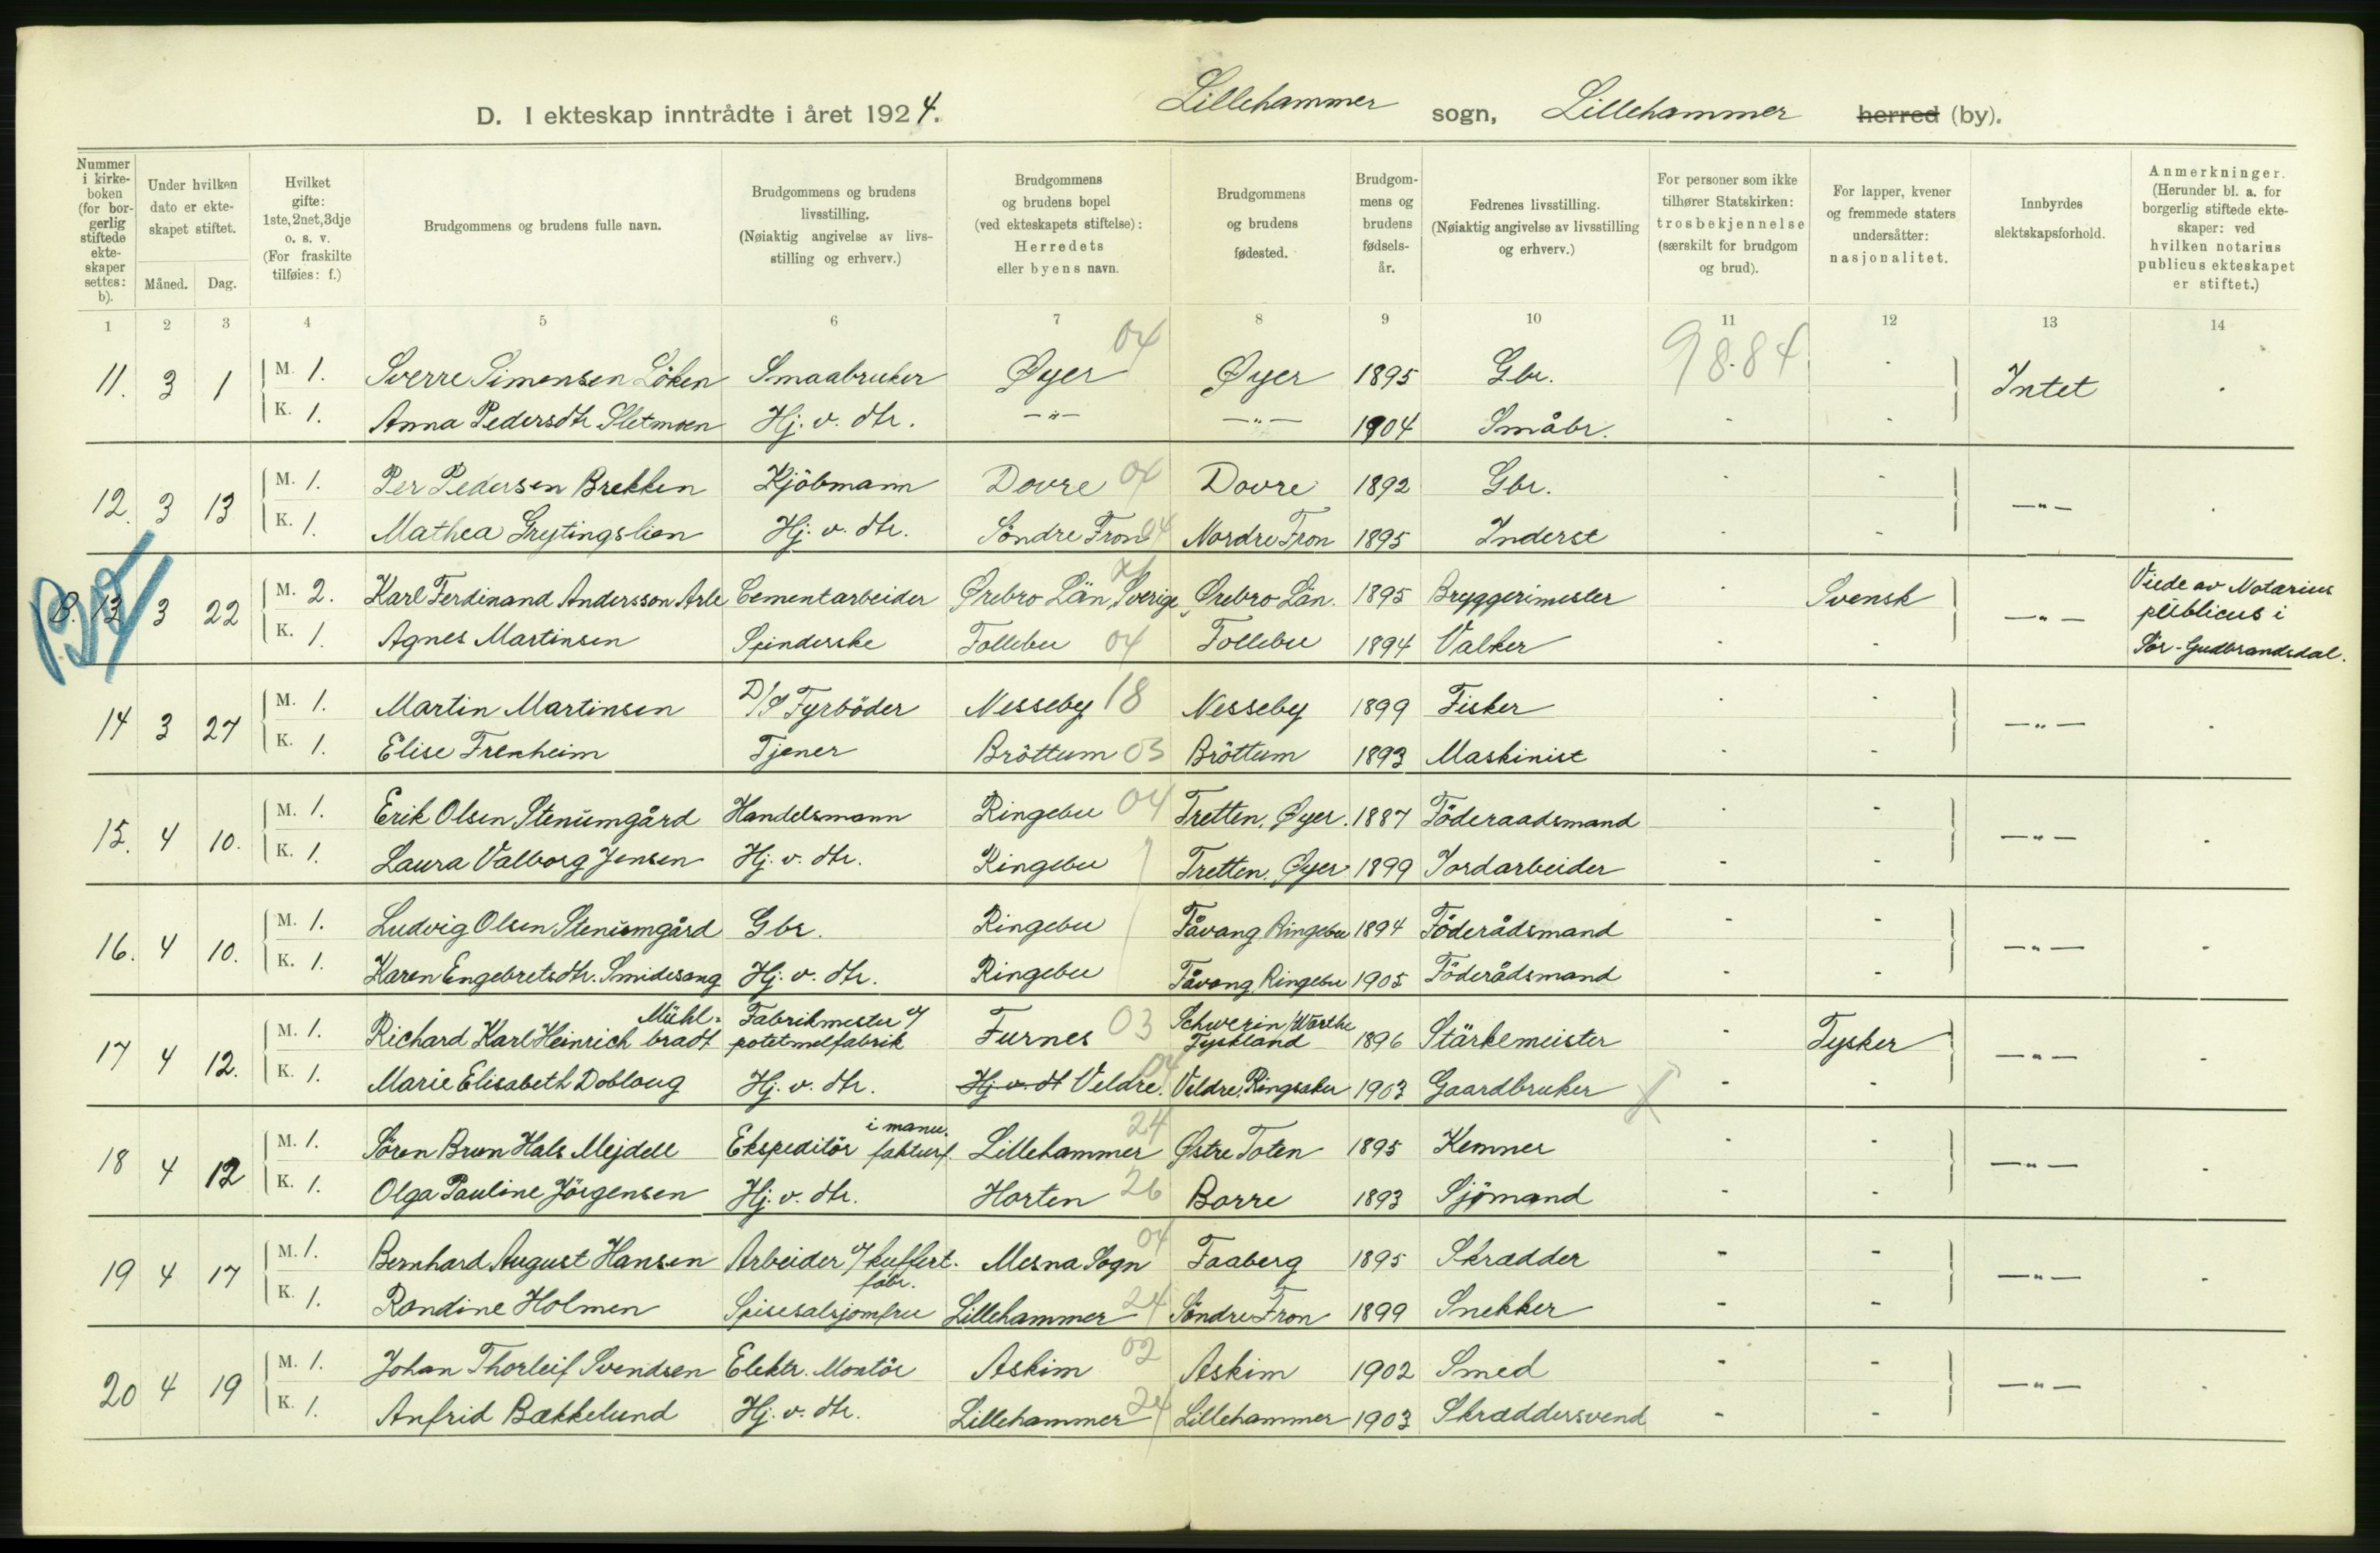 D. I ekteskap inntrådte i året 1924. Lillehammer sogn, Lillehammer herred (by).
Nummer i kirkeboken (for borgerlig stiftede ekteskaper settes: b).
Under hvilken dato er ekteskapet stiftet.
Måned. Dag.
Hvilket gifte: 1ste, 2net, 3dje o. s. v. (For fraskilte tilføies: f.)
Brudgommens og brudens fulle navn.
Brudgommens og brudens livsstilling. (Nøiaktig angivelse av livsstilling og erhverv.)
Brudgommens og brudens bopel (ved ekteskapets stiftelse): Herredets eller byens navn.
Brudgommens og brudens fødested.
Brudgommens og brudens fødselsår.
Fedrenes livsstilling. (Nøiaktig angivelse av livsstilling og erhverv.)
For personer som ikke tilhører Statskirken: trosbekjennelse (særskilt for brudgom og brud).
For lapper, kvener og fremmede staters undersåtter: nasjonalitet.
Innbyrdes slektskapsforhold.
Anmerkninger. (Herunder bl. a. for borgerlig stiftede ekteskaper: ved hvilken notarius publicus ekteskapet er stiftet.)
1 2 3 4 5 6 7 8 9 10 11 12 13 14
11. 3 1 M. 1. Sverre Simensen Löken Smaabruker Øyer 04 Øyer 1895 Gbr. 98.84 - Intet .
K. 1. Anna Pedersdtr Sletmoen Hj. v. dtr. —"— —"— 1904 Småbr. - -
12. 3 13 M. 1. Per Pedersen Brekken Kjöbmann Dovre 04 Dovre 1892 Gbr. - - —"— .
K. 1. Mathea Grytingslien Hj. v. dtr. Söndre Fron 04 Nordre Fron 1895 Inderst - -
B. 13 3 22 M. 2. Karl Ferdinand Andersson Arle Cementarbeider Örebro Län, Sverige Örebro Län. 1895 Bryggerimester - Svensk —"— Viede av Notarius publicus i Sör-Gudbrandsdal.
K. 1. Agnes Martinsen Spinderske Follebu 04 Follebu 1894 Valker - -
14 3 27 M. 1. Martin Martinsen D/S Fyrböder Nesseby 18 Nesseby 1899 Fisker - - —"— .
K. 1. Elise Frenheim Tjener Bröttum 03 Bröttum 1893 Maskinist - -
15. 4 10. M. 1. Erik Olsen Stenumgård Handelsmann Ringebu 04 Tretten, Øyer. 1887 Föderaadsmand - - —"— .
K. 1. Laura Valborg Jensen Hj. v. dtr. Ringebu Tretten, Øyer 1899 Jordarbeider - -
16. 4 10. M. 1. Ludvig Olsen Stenumgård Gbr. Ringebu Fåvang Ringebu 1894 Föderådsmand - - —"— -
K. 1. Karen Engebretsdtr. Smidesang Hj. v. dtr. Ringebu Fåvang, Ringebu 1905 Föderådsmand - -
17 4 12. M. 1. Richard Karl Heinrich Mühl-bradt Fabrikmester v/ potetmelfabrik Furnes 03 Schwerin/Warthe Tyskland 1896 Stärkemeister - Tysker —"— -
K. 1. Marie Elisabeth Dobloug Hj. v. dtr. Hj. v. dt Veldre. 04 Veldre, Ringsaker 1903 Gaardbruker - -
18 4 12 M. 1. Sören Brun Hals Mejdell Ekspeditör i manu.fakturf. Lillehammer 24 Østre Toten 1895 Kemner - - —"— -
K. 1. Olga Pauline Jörgensen Hj. v. dtr. Horten 26 Borre 1893 Sjömand - -
19 4 17 M. 1. Bernhard August Hansen Arbeider v/ kuffert.fabr. Mesna Sogn 04 Faaberg 1895 Skrædder - - —"— -
K. 1. Randine Holmen Spisesalsjomfru Lillehammer 24 Söndre Fron 1899 Snekker - -
20 4 19 M. 1. Johan Thorleif Svendsen Elektr. Montör Askim 02 Askim 1902 Smed - - —"— -
K. 1. Anfrid Bækkelund Hj. v. dtr. Lillehammer 24 Lillehammer 1903 Skræddersvend - -